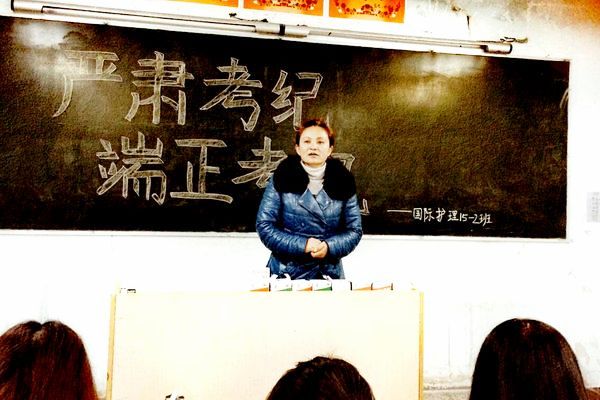 严肃考纪
端正考
——国际护理15-2班